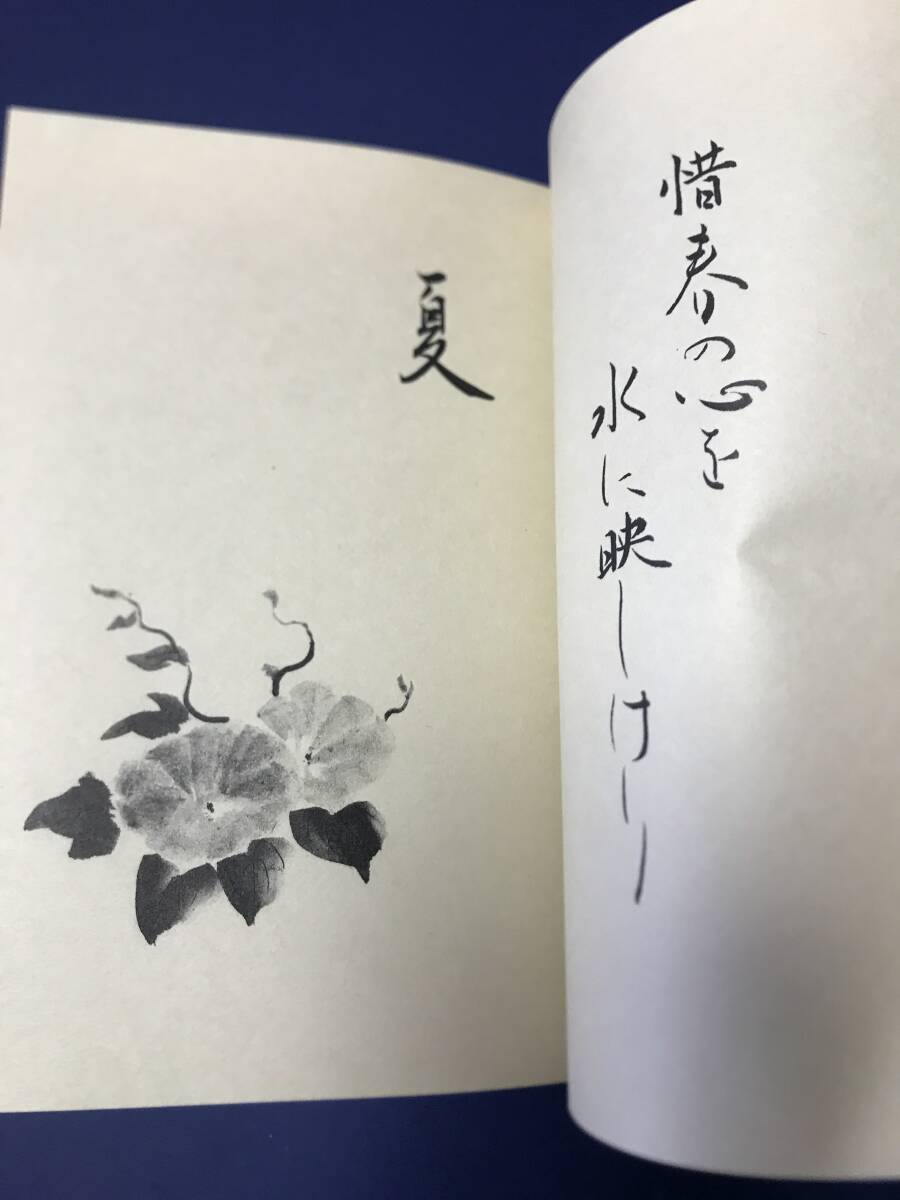 惜春の心を
水に映しけり
夏